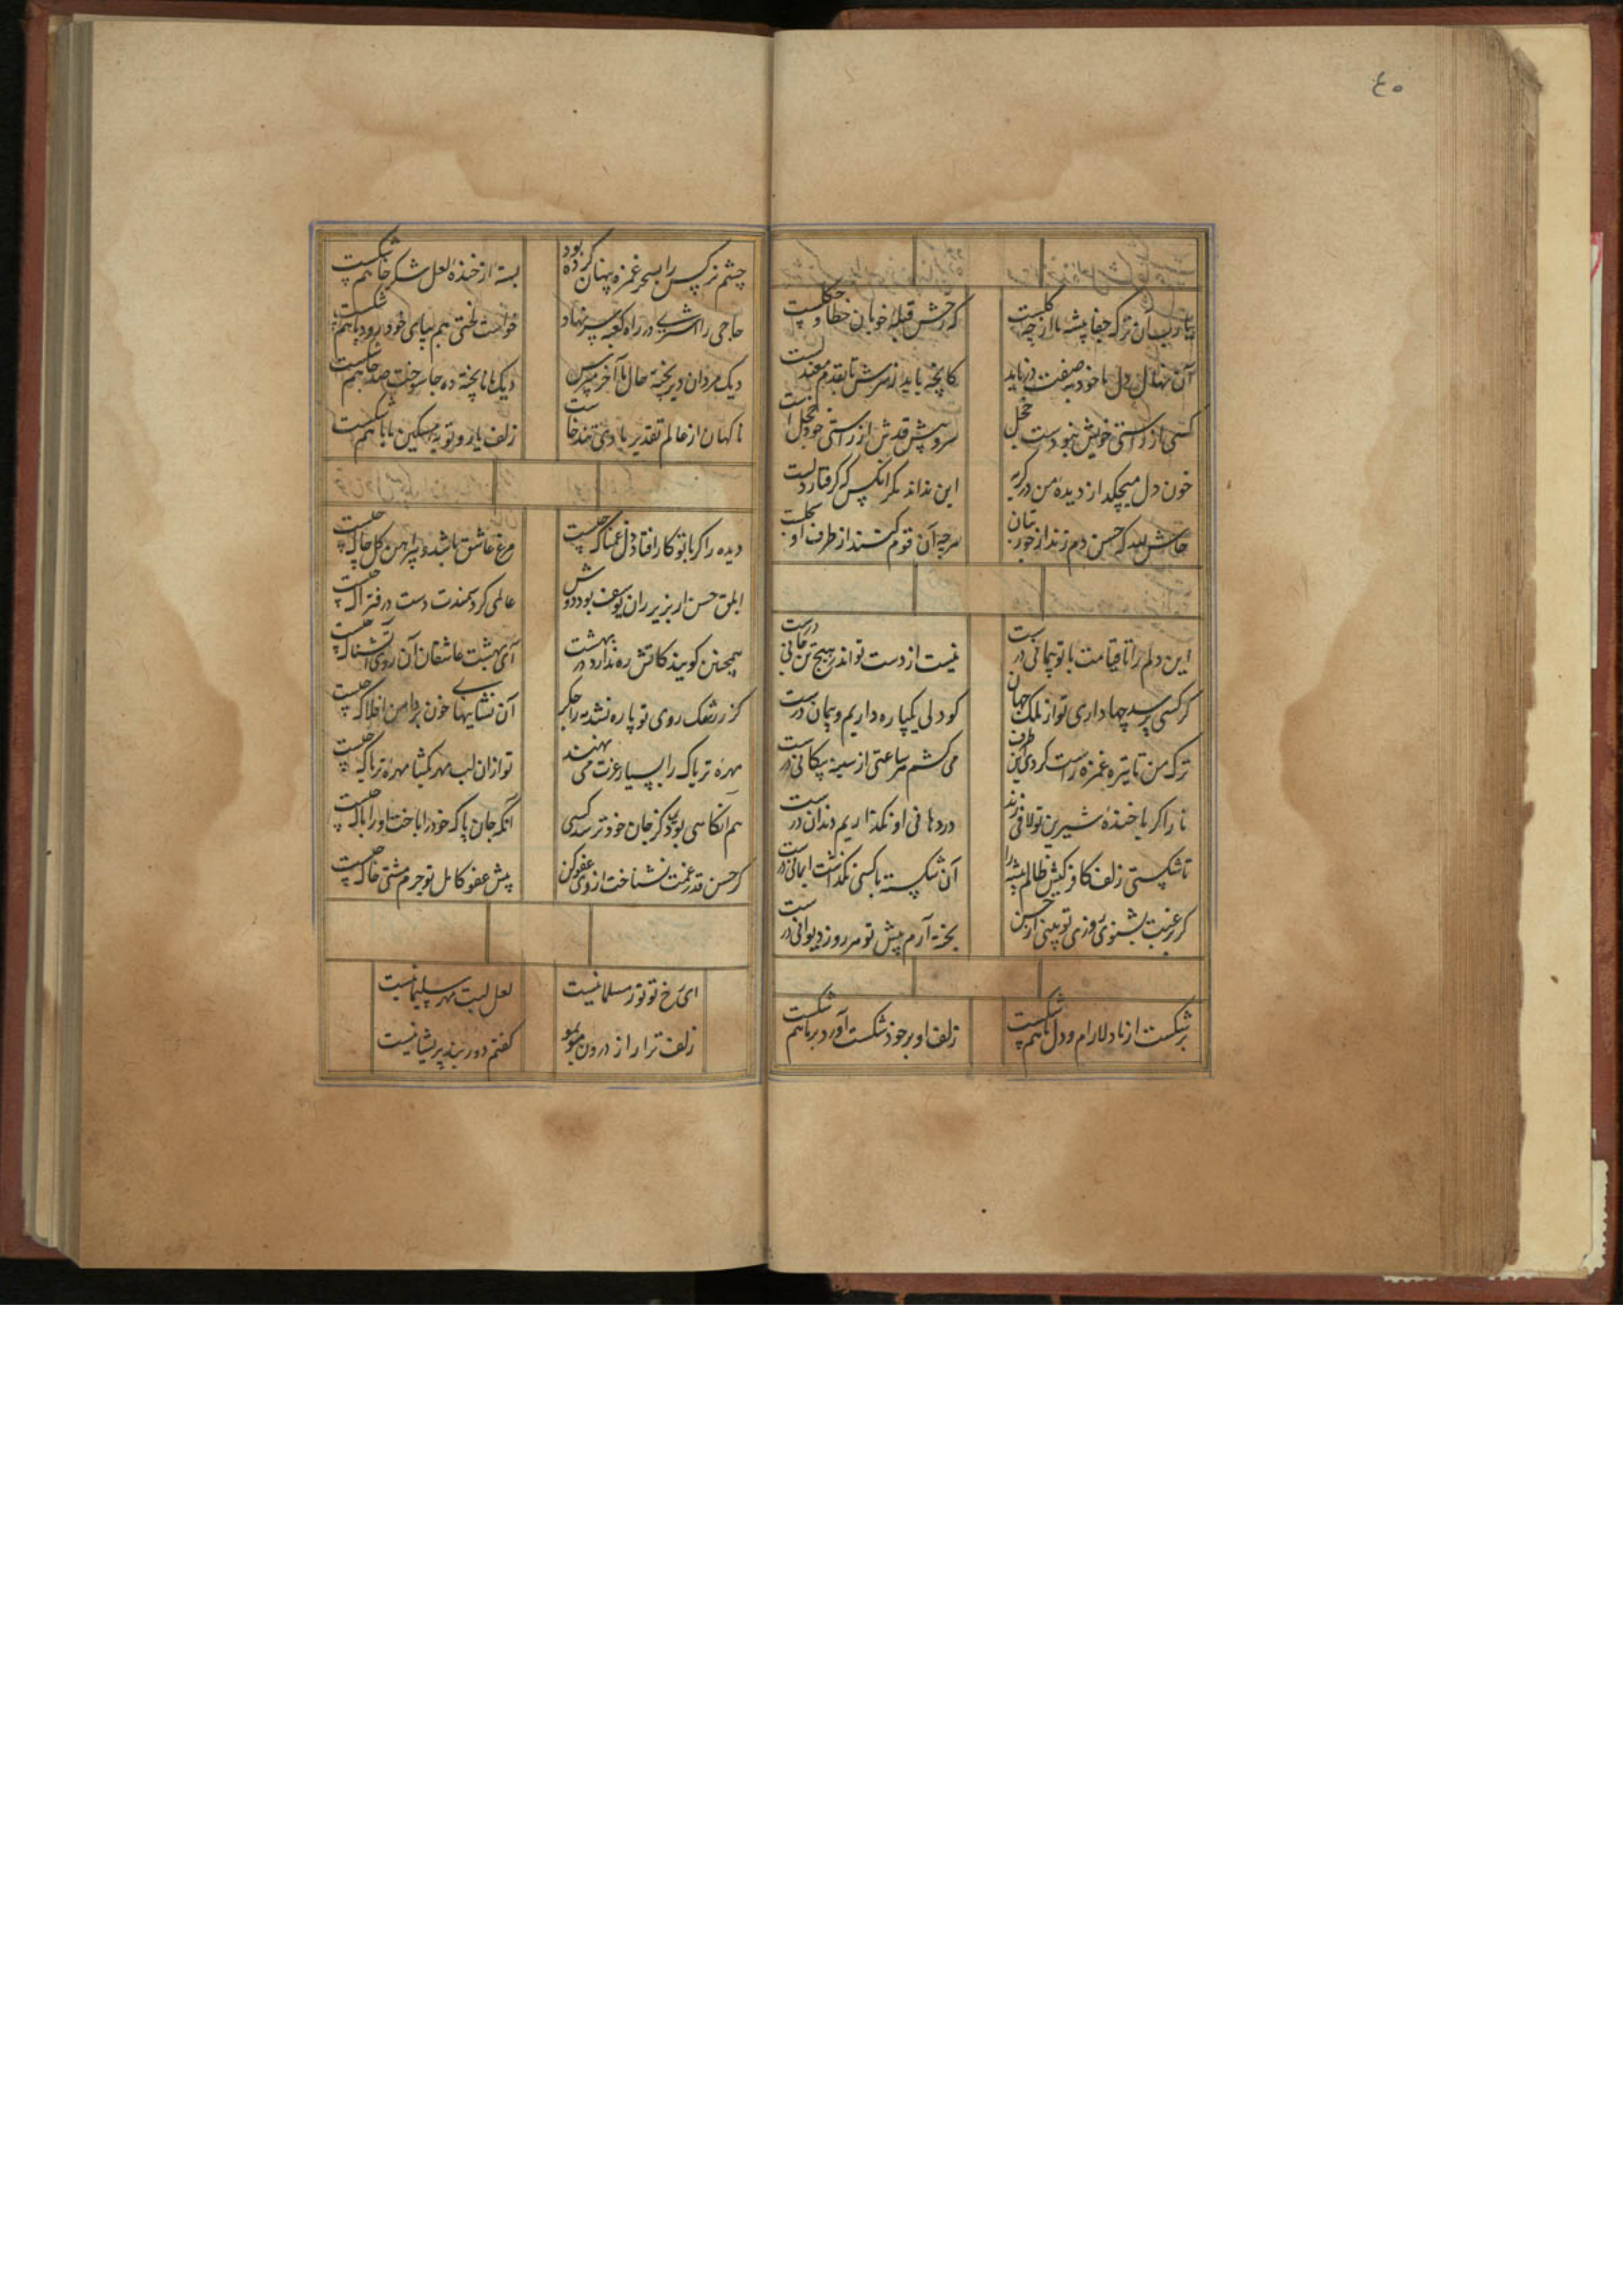 ٤٥
یارب آن ترک جفا پیشه ما از چه گلست
که رخش قبله خوبان خطا و چگلست
آن نهال دل ما خود بچه صفت در باید
کسی از راستی خویش نبودست خجل
سرو پیش قدش از راستی خود خجل است
خون دل میچکد از دیده من در گریه
این نداند مگر آنکس که گرفتار دلست
حاش لله که حسن دم زند از جور بتان
هرچه آن قوم کنند از طرف او بحلست
این دلم را تا قیامت با تو پیمانی درست
نیست از دست تو اندر هیچ تن جانی درست
گر کسی پرسد چها داری تو از ملک جهان
کو دلی یکپاره داریم و پیمان درست
ترک من تا تیر غمزه راست کردی این طرف
می کشم هر ساعتی از سینه پیکانی درست
نار اگر با خنده شیرین تو لافی زند
در دهانی او نگذاریم دندان درست
تا شکستی زلف کافر کیش ظالم پیشه را
آن شکسته با کسی نگذاشت ایمانی درست
گر رغبت بشنوی روزی تو بیتی از حسن
پخته آرم پیش تو هر روز دیوانی درست
بر شکست از ما دلارام و دل ما هم شکست
زلف او بر خود شکست آورد بر ما هم شکست
چشم نرگس را بسحر غمزه پنهان کرده بود
پسته از خنده لعل شکرخا هم شکست
حاجی را اشتری در راه کعبه سر نهاد
خواست لختی هم بپای خود رود پا هم شکست
دیک مردان دیر پخته حال ما آخر مپرس
دیک ما ناپخته ده جا سوخت صد جا هم شکست
ناکهان از عالم تقدیر بادی تند خاست
زلف یار و توبه مسکین ما با هم شکست
دیده را گر با تو کار افتاد دل غمناک چیست
مرغ عاشق باشد و پیراهن گل چاک چیست
ابلق حسن ار بزیر ران یوسف بود دوش
عالمی گرد سمندت دست در فتراک چیست
همچنین گویند کاتش ره ندارد در بهشت
آی بهشت عاشقان آن روی آتشناک چیست
گر ز رشک روی تو پاره نشد مه را جگر
آن نشانیهای خون بر دامن افلاک چیست
مهره تریاک را بسیار عزت می نهند
تو از آن لب مهر بگشا مهره تریاک چیست
هم آنگاهی بود کز جان خود ترسد کسی
آنکه جان پاک خود را باخت او را باک چیست
گر حسن قدر غمت نشناخت از وی عفو کن
پیش عفو کامل تو جرم مشتی خاک چیست
ای رخ تو نور مسلمانیست
لعل لبت مهر سلیمانیست
زلف ترا راز درون مو بمو
گفتم و در بند پریشانیست